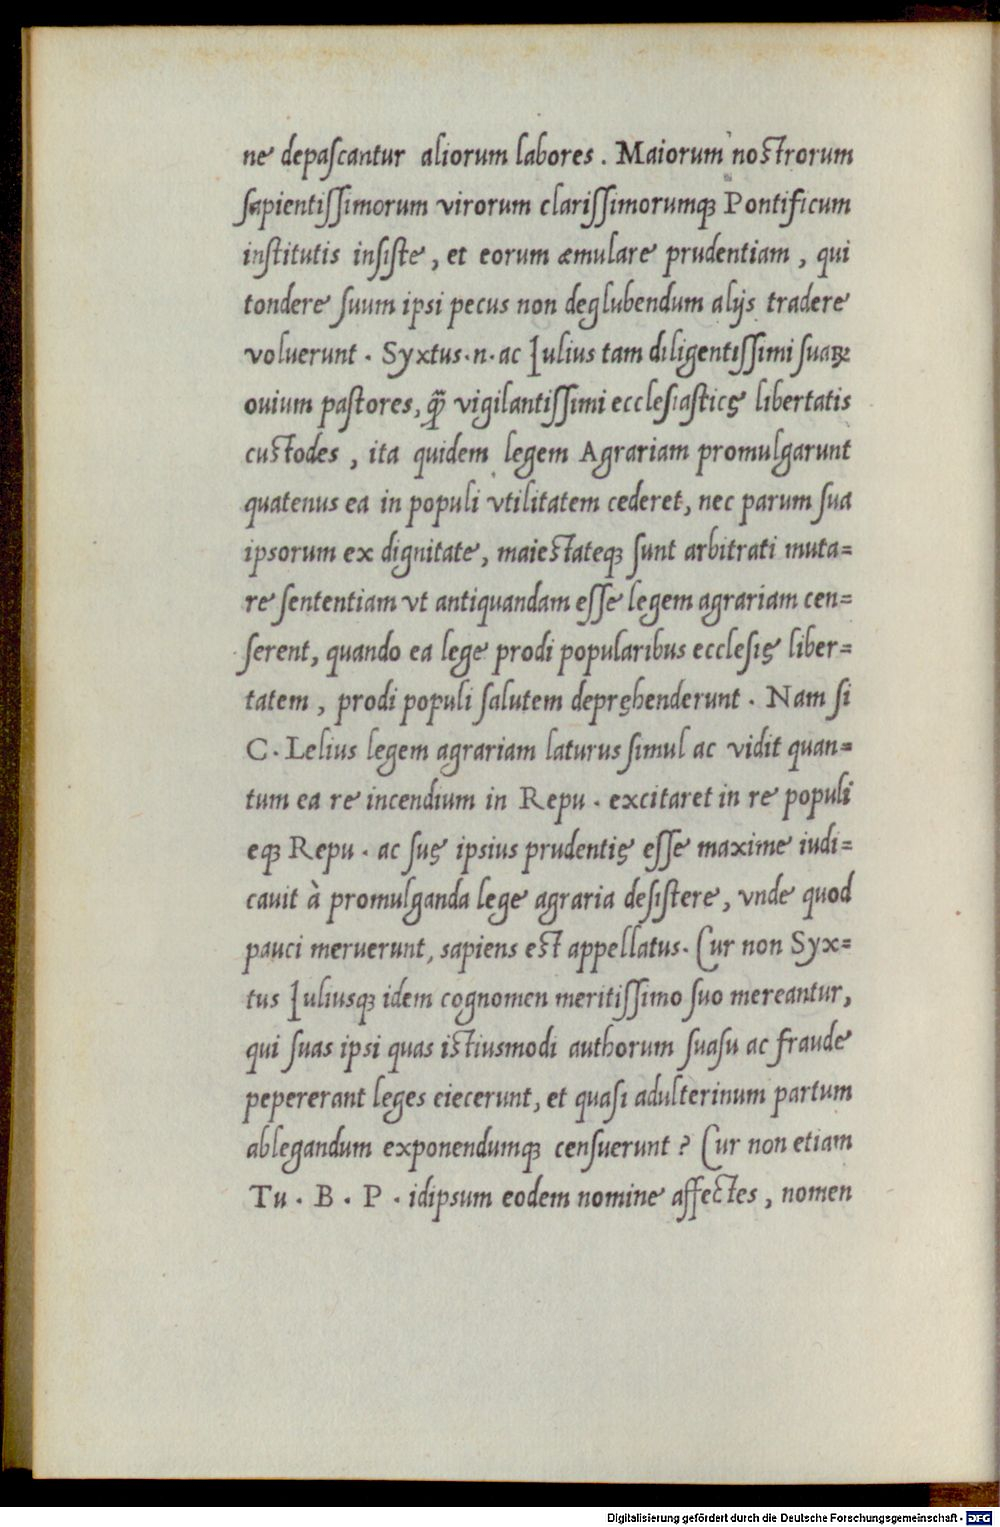 ne depaſcantur aliorum labores . Maiorum noſtrorum
ſapientiſſimorum virorum clariſſimorumꝙ Pontificum
inſtitutis inſiſte , et eorum æmulare prudentiam , qui
tondere ſuum ipsi pecus non deglubendum alijs tradere
voluerunt . Syxtus . n . ac Julius tam diligentiſſimi ſuaꝝ
ouium paſtores, ꝙ̃ vigilantiſſimi eccleſiaſticę libertatis
cuſtodes , ita quidem legem Agrariam promulgarunt
quatenus ea in populi vtilitatem cederet, nec parum ſua
ipsorum ex dignitate, maieſtateqꝫ ſunt arbitrati muta=
re ſententiam vt antiquandam eſſe legem agrariam cen=
ſerent, quando ea lege prodi popularibus eccleſię liber=
tatem , prodi populi ſalutem depręhenderunt . Nam ſi
C . Lelius legem agrariam laturus ſimul ac vidit quan=
tum ea re incendium in Repu . excitaret in re populi
eqꝫ Repu . ac ſuę ipsius prudentię eſſe maxime iudi=
cauit à promulganda lege agraria deſiſtere, vnde quod
pauci meruerunt, sapiens eſt appellatus . Cur non Syx=
tus Juliusqꝫ idem cognomen meritiſſimo ſuo mereantur,
qui ſuas ipsi quas iſtiusmodi authorum ſuaſu ac fraude
pepererant leges eiecerunt, et quaſi adulterinum partum
ablegandum exponendumqꝫ cenſuerunt ? Cur non etiam
Tu . B . P . idipsum eodem nomine affectes , nomen
Digitalisierung gefördert durch die Deutsche Forschungsgemeinschaft - DFG